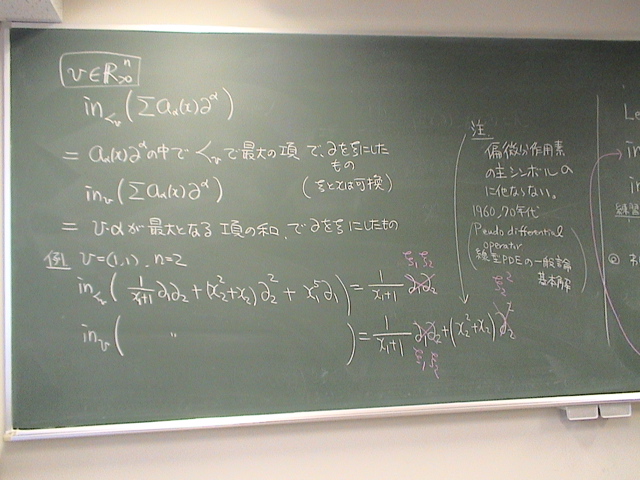 v∈ℝⁿ_{>0}
in_{<_v}(Σ a_α(x)∂^α)
= a_α(x)∂^α の中で <_v で最大の項 で、∂をξにしたもの
(ξとxは可換)
in_v(Σ a_α(x)∂^α)
= v・αが最大となる項の和、で∂をξにしたもの
例 v=(1,1), n=2
in_{<_v}( 1/(x₁+1) ∂₁∂₂ + (x₂²+x₂)∂₂² + x₁⁵∂₁ ) = 1/(x₁+1) ∂₁∂₂ ξ₁ξ₂
in_v( 〃 ) = 1/(x₁+1) ∂₁∂₂ ξ₁ξ₂ + (x₂²+x₂) ∂₂² ξ₂²
注
偏微分作用素
の主シンボル
に他ならない。
1960,70年代
(Pseudo differential
operator
線型PDEの一般論
基本解)
Le
in
in
練習